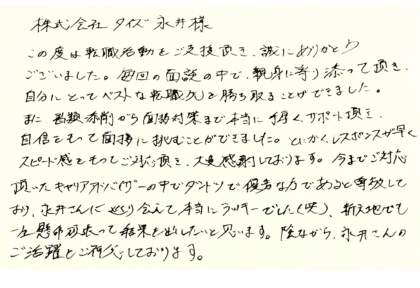 株式会社 タイズ 永井 様
この度は転職活動をご支援頂き、誠にありがとう
ございました。毎回の面談の中で、親身に寄り添って頂き、
自分にとってベストな転職先を勝ち取ることができました。
また、書類添削から面接対策まで本当に手厚くサポート頂き、
自信をもって面接に挑むことができました。とにかく、レスポンスが早く
スピード感をもってご対応頂き、大変感謝しております。今までご対応
頂いたキャリアアドバイザーの中でダントツで優秀な方であると尊敬して
おり、永井さんに巡り会えて本当にラッキーでした(笑)。新天地でも
一生懸命頑張って結果を出したいと思います。陰ながら、永井さんの
ご活躍をご祈念しております。